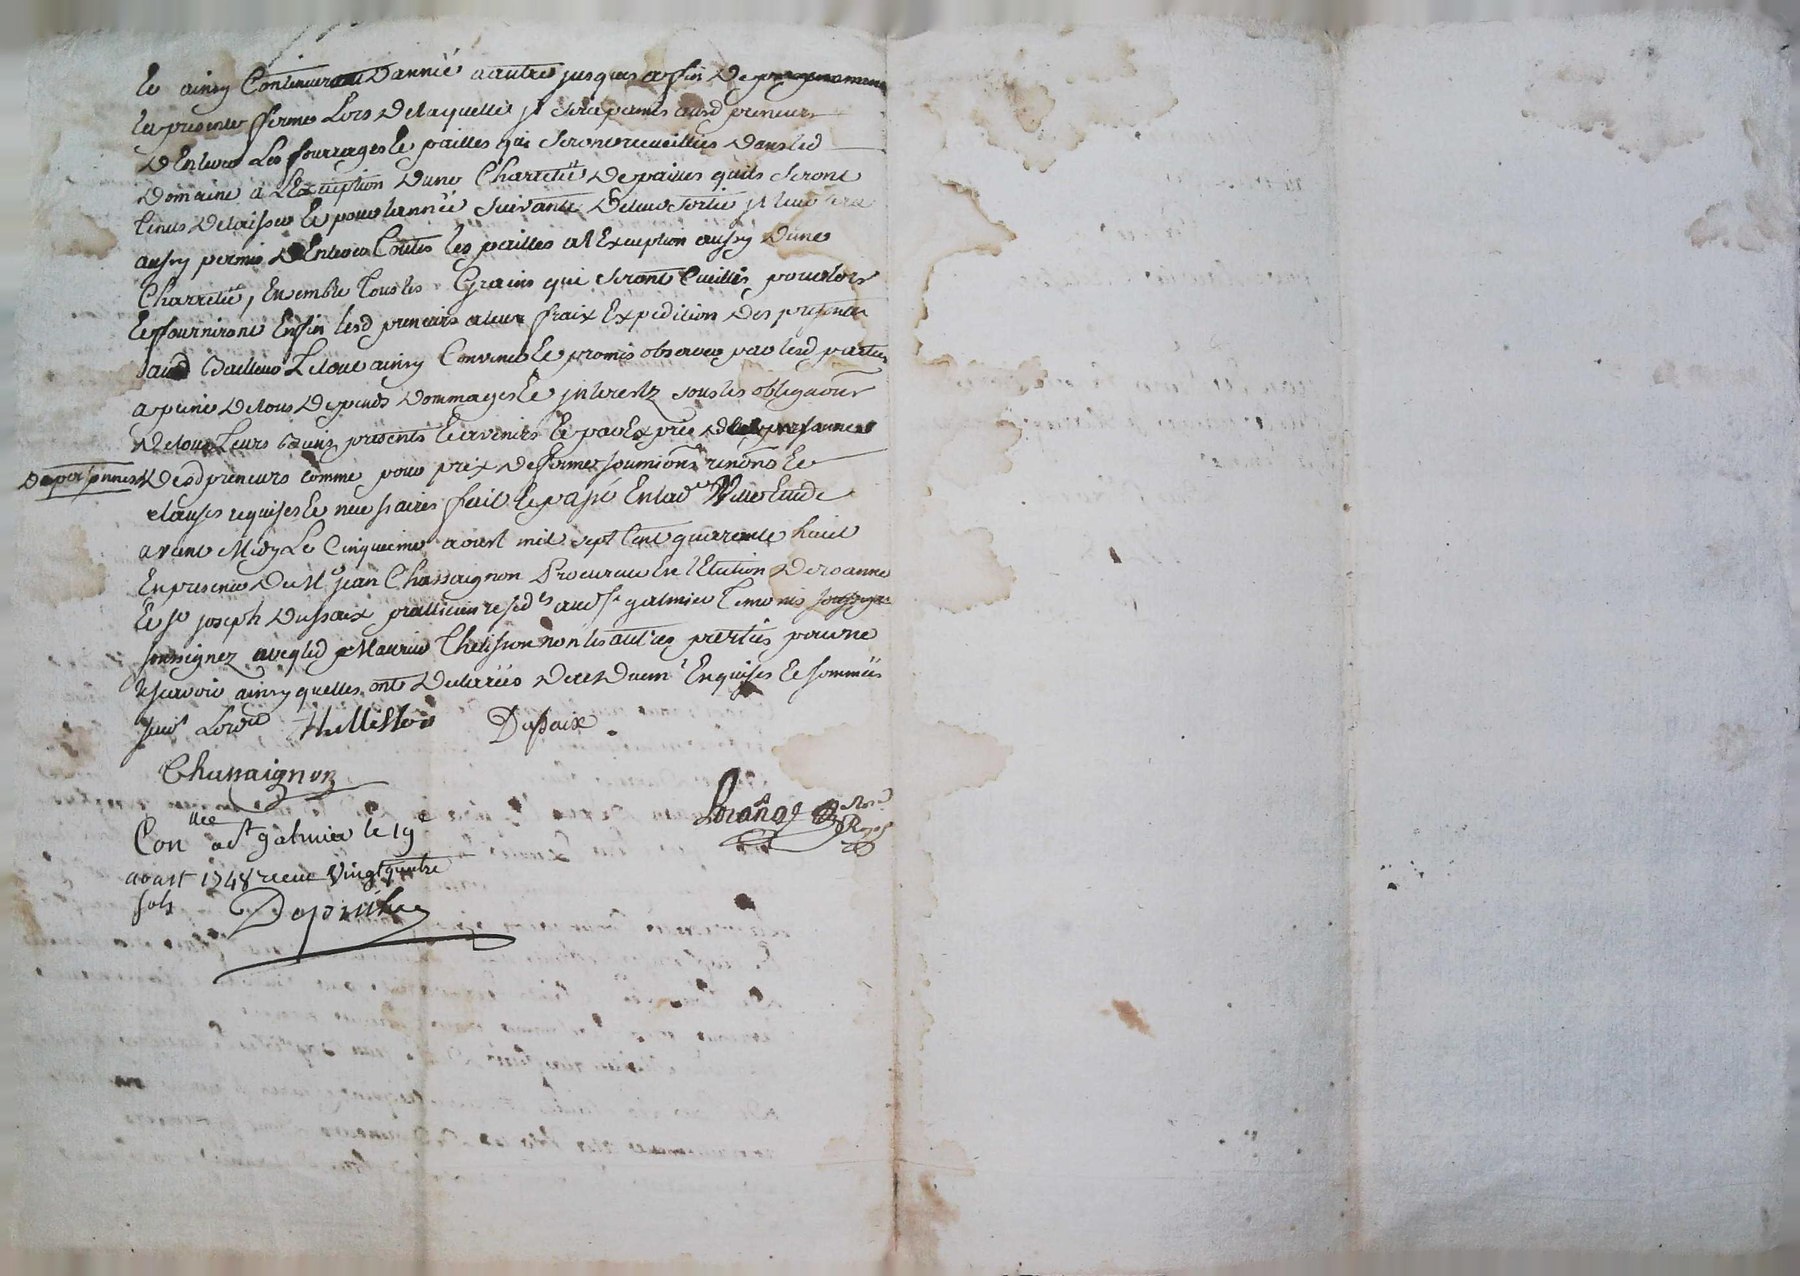 Et ainsy Continueront Dannée a autre jusques a fin De
les presentes ferme Lors De laquelle jl sera permis ausd preneurs
D'Enlever Les fourrages Et pailles qui seront recueillies Dans led
Domaine a L'Exception D'une Charretée De pailles quils seront
tenus De laisser Et pour lannée suivante De leur sortie jl leur sera
aussy permis D'Enlever toutes les pailles a l'Exception aussy D'une
Charretée, Ensemble Tous les Grains qui seront Cueillis pour lors
Et fourniront Enfin lesd preneurs a leur fraix Expedition Des presentes
aud Bailleur Le tout ainsy Convenu Et promis observer par lesd parties
a peine De tous Depends Dommages Et jnterestz sous les obligaons
De tous Leurs Biens presents Et avenirs Et par Exprés
De personnes Desd preneurs comme pour prix De ferme soumions renons Et
clauses requises Et necessaires fait Et passé En lad Ville Etude
avant Midy Le Cinquieme aoust mil sept Cent quarante huit
En presence De Me jean Chassaignon Procureur En l'Election De roanne
Et sr joseph Dussaix praticien residt aud st galmier temoins
soussignez avec led Maurice Thelisson non les autres parties pour ne
scavoir ainsy quelles ont Declarées De ce Duemt Enquises Et sommées
suivt Lordce Thellisson Dussaix
Chassaignon
Conllée a st galmier le 19e
aoust 1748 receu vingtquatre
sols